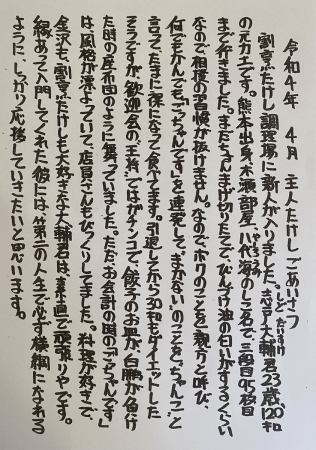 令和4年　4月　主人たけしごあいさつ
割烹たけし調理場に新人が入りました。志戸大輔君23歳120キロ
の元力士です。熊本出身木瀬部屋八代海のしこ名で、三段目95枚目
まで行きました。まだちょんまげ切りたてで、びんづけ油の匂いがするぐらい
なので相撲の習慣が抜けません。なのでボクのことを「親方」と呼び、
何でもかんでも「ごっちゃんです」を連発して、まかないのことを「ちゃんこ」と
言って、たまに裸になって食べてます。引退してから30キロもダイエットした
そうですが、歓迎会の王将ではガチンコで餃子のお皿が、白鵬が負け
た時の座布団のように舞っていました。ただ、お会計の時の「ごっちゃんです」
は、風格が漂よっていて、店員さんもびっくりしてました。料理が好きで、
金沢も、割烹たけしも大好きな大輔君は、素直で頑張りやです。
縁あって入門してくれた彼には、第二の人生で必ず横綱になれる
ように、しっかり応援していきたいと思います。